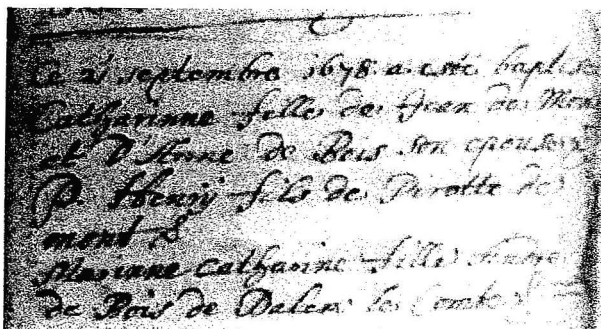 Ce 21 septembre 1678 a esté baptisé
Catharinne fille de Jean de Mon
et D'Anne de Bois son epouse
P. Henry fils de Pirotte de
mont &
Mariane Catharine fille
de Bois de Dalem le Conte